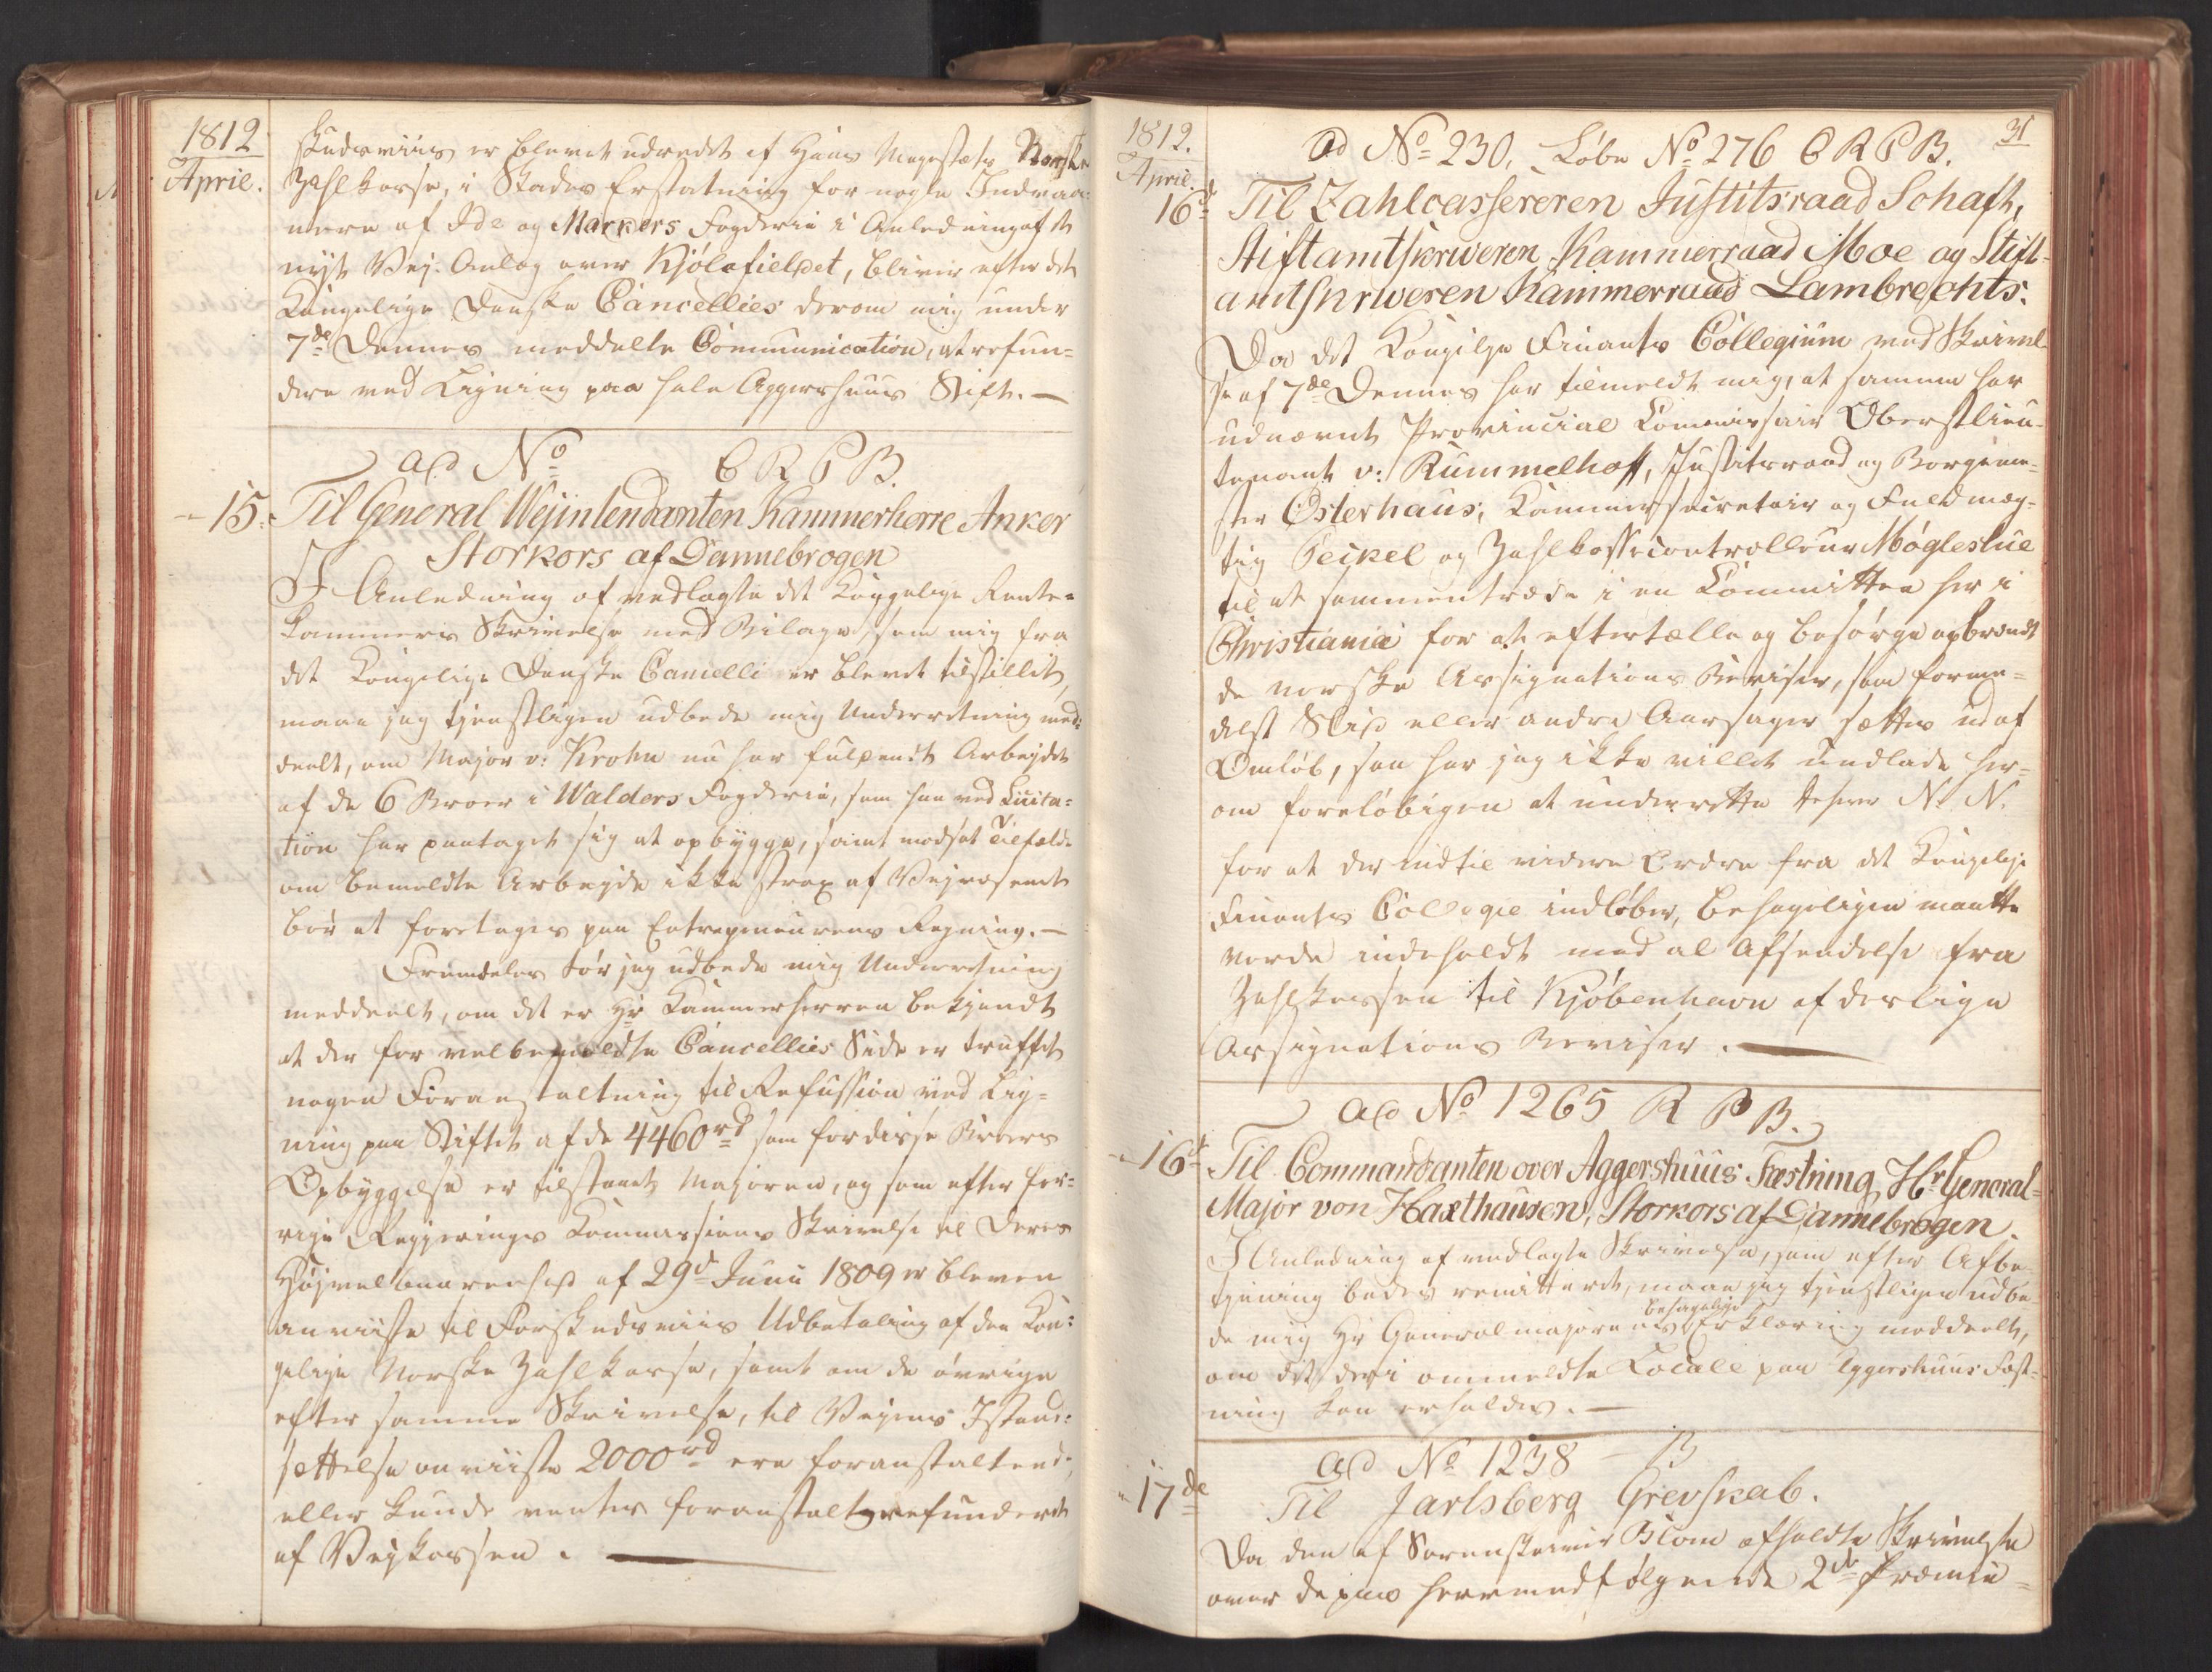 1812
April.
skudsviis er blevet udredet af Hans Majestæts Norske
Zahlkasse, i Skades Erstatning for nogle Indvaa-
nere af Ide og Markers Fogderie i Anledning af det
nye Vej-Anlæg over Kjólefieldet, bliver efter det
Kongelige Danske Cancellies derom mig under
7de Dennes meddelte Communication, at refun-
dere ved Ligning paa hele Aggershuus Stift. —
ad No C R P B.
15. Til General Vejintendanten Kammerherre Anker
Storkors af Dannebrogen
I Anledning af vedlagte det Kongelige Rente-
kammers Skrivelse med Bilage, som mig fra
det Kongelige Danske Cancellie er blevet tilstillet,
maae jeg tjenstligen udbede mig Underretning med-
deelt, om Major v: Krohn nu har fuldendt Arbejdet
af de 6 Broer i Walders Fogderie, som han ved Licita-
tion har paataget sig at opbygge, samt modsat Tilfælde
om bemeldte Arbejde ikke strax af Vejvæsenet
bør at foretages paa Entrepreneurens Regning. —
Fremdeles tør jeg udbede mig Underretning
meddeelt, om det er Hr Kammerherren bekjendt
at der for velbemeldte Cancellies Side er truffet
nogen Foranstaltning til Refussion ved Lig-
ning paa Stiftet af de 4460 rd som for disse Broers
Opbyggelse er tilstaaet Majoren, og som efter for-
rige Regjerings Commissions Skrivelse til Deres
Højvelbaarenhed af 29d Junii 1809 er bleven
anviiste til Forskudsviis Udbetaling af den Kon-
gelige Norske Zahlkasse, samt om de øvrige
efter samme Skrivelse, til Vejens Istand-
sættelse anviiste 2000 rd ere foranstaltend:
eller kunde ventes foranstaltet refunderet
af Vejkassen. —
31
1812.
April.
ad No 230, Løbe No 276 C R P B.
16d Til Zahlcassereren Justitsraad Schaft,
Stiftamtskriveren Kammerraad Moe og Stift-
amtskriveren Kammerraad Lambrechts.
Da det Kongelige Finants Collegium ved Skrivel-
se af 7de Dennes har tilmeldt mig, at samme har
udnævnt Provincial Commissair Oberstlieu-
tenant v: Rummelhoff, Justitsraad og Borgeme-
ster Osterhaus, Kammersecretair og Fuldmæg-
tig Peckel og Zahlkassecontrolleur Møglestue
til at sammentræde i en Committee her i
Christiania for at eftertælle og besørge opbrændt
de norske Assignations Beviser, som forme-
delst Slid eller andre Aarsager sættes ud af
Omløb, saa har jeg ikke villet undlade her-
om foreløbigen at underrette Deres N. N.
for at der indtil videre Ordre fra det Kongelige
Finants Collegie indløber, behageligen maatte
vorde indeholdt med al Afsendelse fra
Zahlkassen til Kjøbenhavn af deslige
Assignations Beviser. —
ad No 1265 R P B.
16d Til Commandanten over Aggershuus Fæstning, Hr General-
Major von Haxthausen, Storkors af Dannebrogen.
I Anledning af vedlagte Skrivelse, som efter Afbe-
tjening bedes remitteret, maae jeg tjenstligen udbe-
de mig Hr Generalmajorens behagelige Erklæring meddeelt,
om det deri ommeldte Locale paa Aggershuus Fæst-
ning kan erholdes. —
ad No 1238 B
17de Til Jarlsberg Grevskab.
Da den af Sorenskriver Blom afholdte Skrivelse
over de paa hermed følgende 2de Præmie-